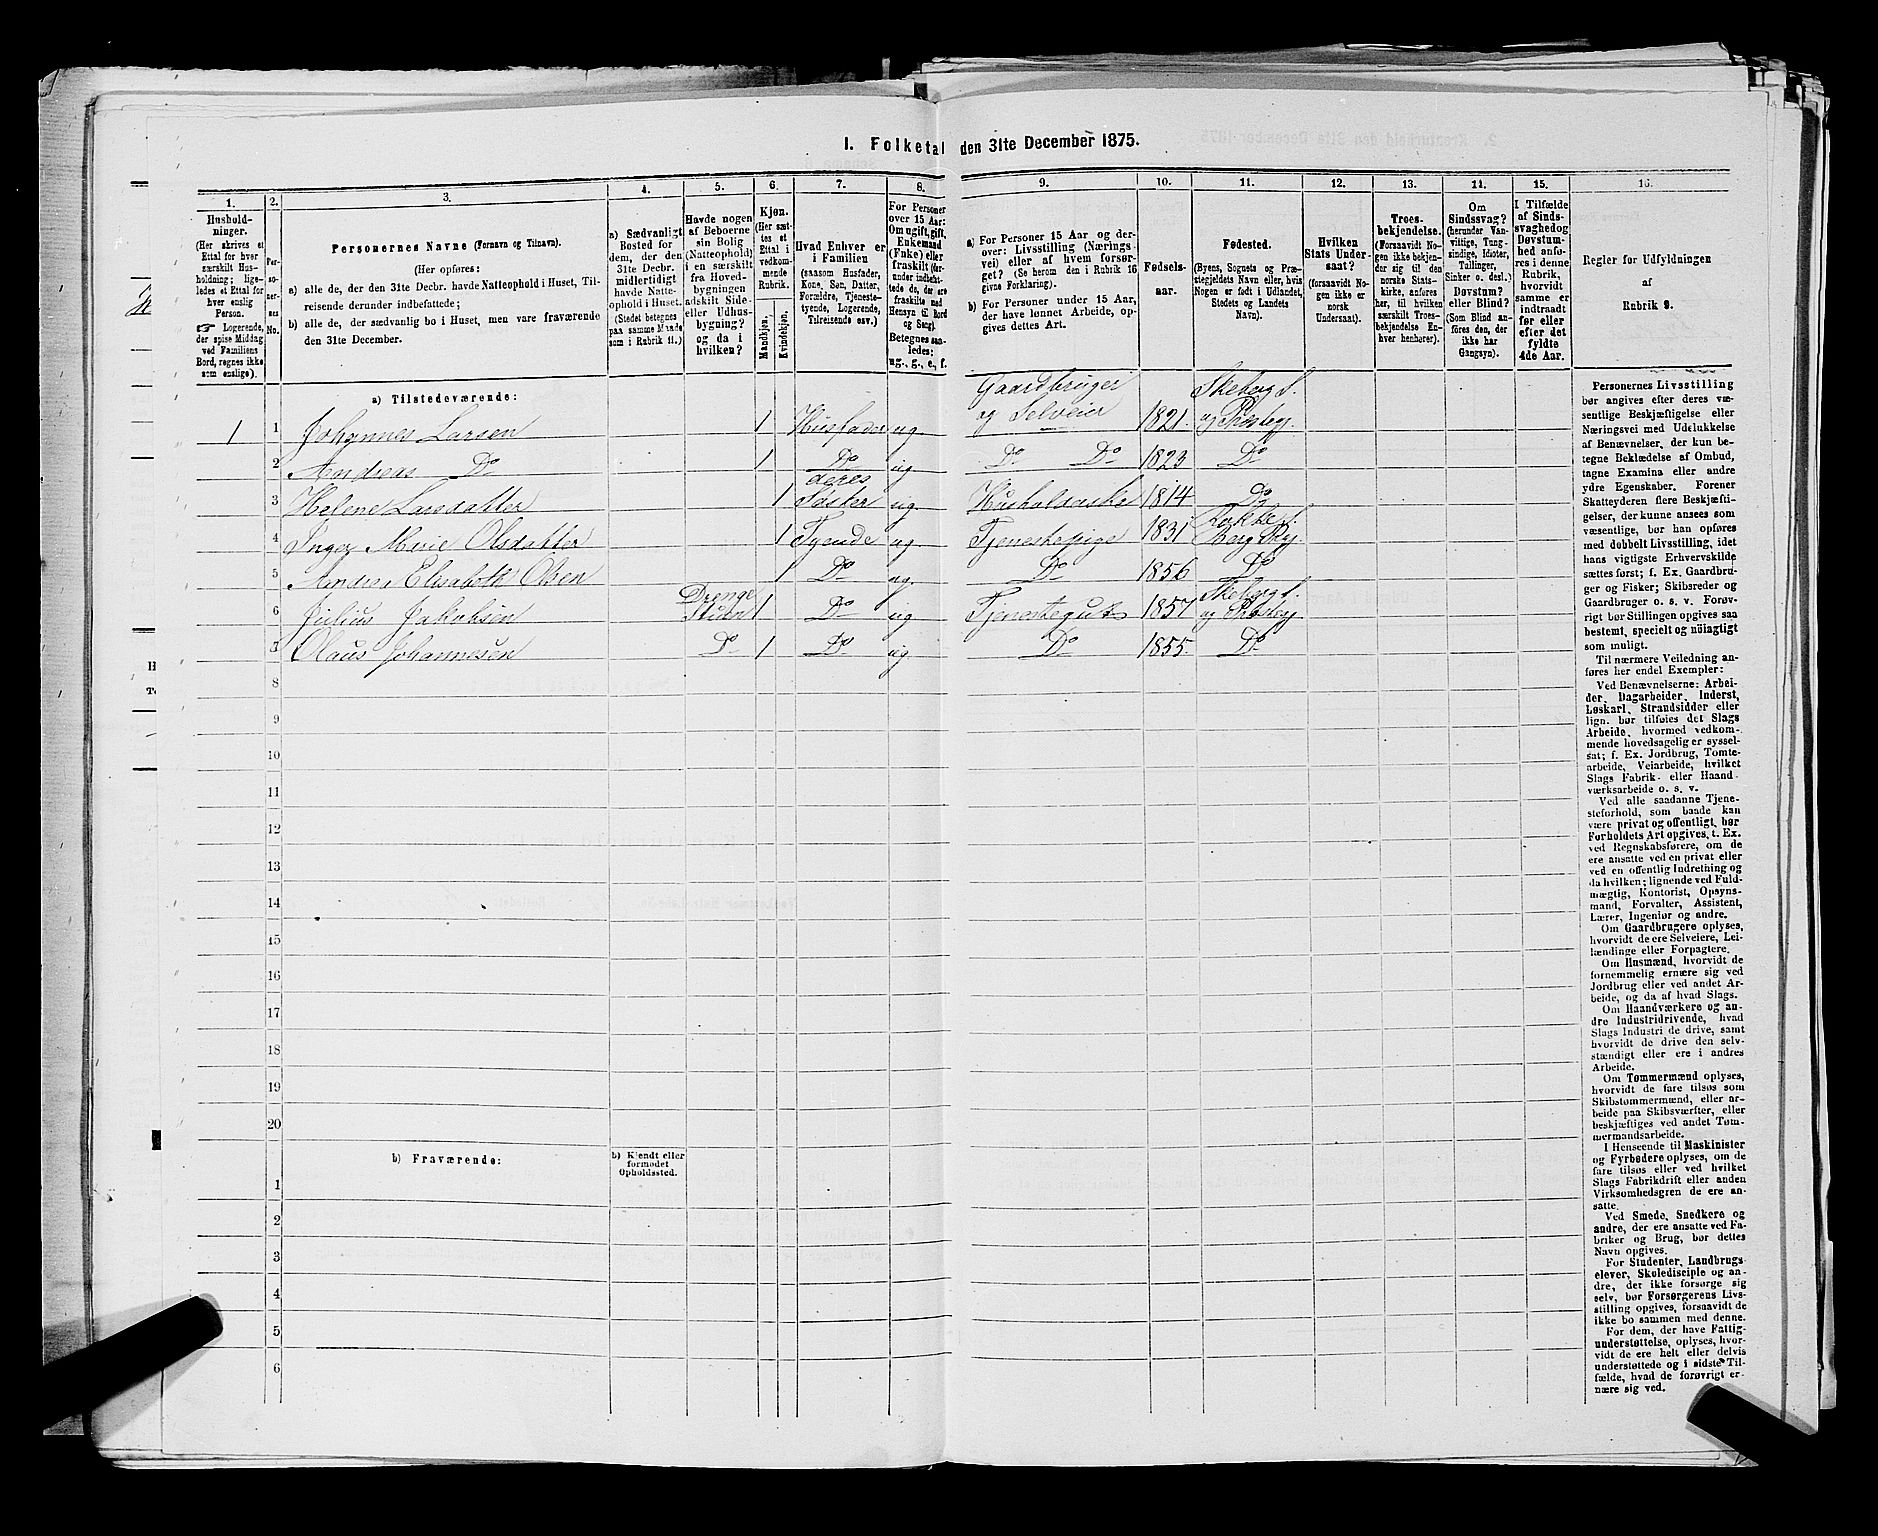 1. Folketal den 31te December 1875.
1. 2. 3. 4. 5. 6. 7. 8. 9. 10. 11. 12. 13. 14. 15. 16.
Hushold-
ninger.
(Her skrives et
Ettal for hver
særskilt Hus-
holdning; lige-
ledes et Ettal for
hver enslig
Person.
☞ Logerende,
der spise Middag
ved Familiens
Bord, regnes ikke
som enslige).
Per-
so-
ner-
nes
No.
Personernes Navne (Fornavn og Tilnavn).
(Her opføres:
a) alle de, der den 31te Decbr. havde Natteophold i Huset, Til-
reisende derunder indbefattede;
b) alle de, der sædvanlig bo i Huset, men vare fraværende
den 31te December.
a) Sædvanligt
Bosted for
dem, der den
31te Decbr.
midlertidigt
havde Natte-
ophold i Huset.
(Stedet betegnes
paa samme Maade
som i Rubrik 11.)
Havde nogen
af Beboerne
sin Bolig
(Natteophold)
i en særskilt
fra Hoved-
bygningen
adskilt Side-
eller Udhus-
bygning?
og da i
hvilken?
Kjøn.
(Her sæt-
tes et
Ettal i
vedkom-
mende
Rubrik.
Mandkjøn.
Kvindekjøn.
Hvad Enhver er
i Familien
(saasom Husfader,
Kone, Søn, Datter,
Forældre, Tjeneste-
tyende, Logerende,
Tilreisende osv.)
For Personer
over 15 Aar:
Om ugift, gift,
Enkemand
(Enke) eller
fraskilt (for-
under indbefat-
tede de, der ere
fraskilte med
Hensyn til Bord
og Seng).
Betegnes saa-
ledes:
ug., g., e., f.
a) For Personer 15 Aar og der-
over: Livsstilling (Nærings-
vei) eller af hvem forsør-
get? (Se herom den i Rubrik 16
givne Forklaring).
b) For Personer under 15 Aar,
der have lønnet Arbeide, op-
gives dettes Art.
Fødsels-
aar.
Fødested.
(Byens, Sognets og Præ-
stegjeldets Navn eller, hvis
Nogen er født i Udlandet,
Stedets og Landets
Navn).
Hvilken
Stats Under-
saat?
(forsaavidt No-
gen ikke er
norsk
Undersaat).
Troes-
bekjendelse.
(Forsaavidt No-
gen ikke bekjen-
der sig til den
norske Stats-
kirke, anføres
her, til hvilken
særskilt Troes-
bekjendelse En-
hver henhører).
Om
Sindssvag?
(herunder Van-
vittige, Tung-
sindige, Idioter,
Tullinger,
Sinker o. desl.)
Døvstum?
eller Blind?
(Som Blind an-
føres den, der
ikke har
Gangsyn).
I Tilfælde
af Sinds-
svaghed og
Døvstum-
hed anfø-
res i denne
Rubrik,
hvorvidt
samme er
indtraadt
før eller
efter det
fyldte
4de Aar.
Regler for Udfyldningen
af
Rubrik 9.
a) Tilstedeværende:
Gaardbruger Skeberg S.
1 1 Johannes Larsen 1 Husfader ug og Selveier 1821. og Præstegj.
2 Andreas Do 1 Do ug Do Do 1823 Do
deres
3 Helene Larsdatter 1 Søster ug. Husholderske 1814 Do
Rokke S.
4 Inger Marie Olsdatter 1 Tyende ug Tjenestepige 1831 Berg Pgj.
5 Andrea Elisabeth Olsen 1 Do ug. Do 1856 Do
Drenge Skeberg S.
6 Julius Jakobsen Stuen 1 Do ug Tjenestegut 1857 og Præstegj
7 Olaus Johannesen Do 1 Do ug. Do 1855. Do
8
9
10
11
12
13
14
15
16
17
18
19
20
b) Fraværende:
b) Kjendt eller
formodet
Opholdssted.
1
2
3
4
5
6
Personernes Livsstilling
bør angives efter deres væ-
sentlige Beskjæftigelse eller
Næringsvei med Udelukkelse
af Benævnelser, der kun be-
tegne Beklædelse af Ombud,
tagne Examina eller andre
ydre Egenskaber. Forener
Skatteyderen flere Beskjæfti-
gelser, der kunne ansees som
væsentlige, bør han opføres
med dobbelt Livsstilling, idet
hans vigtigste Erhvervskilde
sættes først; f. Ex. Gaardbru-
ger og Fisker; Skibsreder og
Gaardbruger o. s. v. Forøv-
rigt bør Stillingen opgives saa
bestemt, specielt og nöiagtigt
som muligt.
Til nærmere Veiledning an-
føres her endel Exempler:
Ved Benævnelserne: Arbei-
der, Dagarbeider, Inderst,
Løskarl, Strandsidder eller
lign. bør tilføies det Slags
Arbeide, hvormed vedkom-
mende hovedsagelig er syssel-
sat; f. Ex. Jordbrug, Tomte-
arbeide, Veiarbeide, hvilket
Slags Fabrik- eller Haand-
værksarbeide o. s. v.
Ved alle saadanne Tjene-
steforhold, som baade kan
være privat og offentligt, bør
Forholdets Art opgives, t. Ex.
ved Regnskabsførere, om de
ere ansatte ved en privat eller
ved en offentlig Indretning og
da hvilken; lignende ved Fuld-
mægtig, Kontorist, Opsyns-
mand, Forvalter, Assistent,
Lærer, Ingeniør og andre.
Om Gaardbrugere oplyses,
hvorvidt de ere Selveiere, Lei-
lændinge eller Forpagtere.
Om Husmænd, hvorvidt de
fornemmelig ernære sig ved
Jordbrug eller ved andet Ar-
beide, og da af hvad Slags.
Om Haandværkere og an-
dre Industridrivende, hvad
Slags Industri de drive, samt
hvorvidt de drive den selv-
stændigt eller ere i andres
Arbeide.
Om Tømmermænd oplyses,
hvorvidt de fare tilsøs som
Skibstømmermænd, eller ar-
beide paa Skibsværfter, eller
beskjæftiges ved andet Tøm-
mermandsarbeide.
I Henseende til Maskinister
og Fyrbødere oplyses, om de
fare tilsøs eller ved hvilket
Slags Fabrikdrift eller anden
Virksomhedsgren de ere an-
satte.
Ved Smede, Snedkere og
andre, der ere ansatte ved Fa-
briker og Brug, bør dettes
Navn opgives.
For Studenter, Landbrugs-
elever, Skoledisciple og an-
dre, der ikke forsørge sig
selv, bør Forsørgerens Livs-
stilling opgives, forsaavidt de
ikke bo sammen med denne.
For dem, der have Fattig-
understøttelse, oplyses, hvor-
vidt de ere helt eller delvis
understøttede og i sidste Til-
fælde, hvad de forøvrigt er-
nære sig ved.